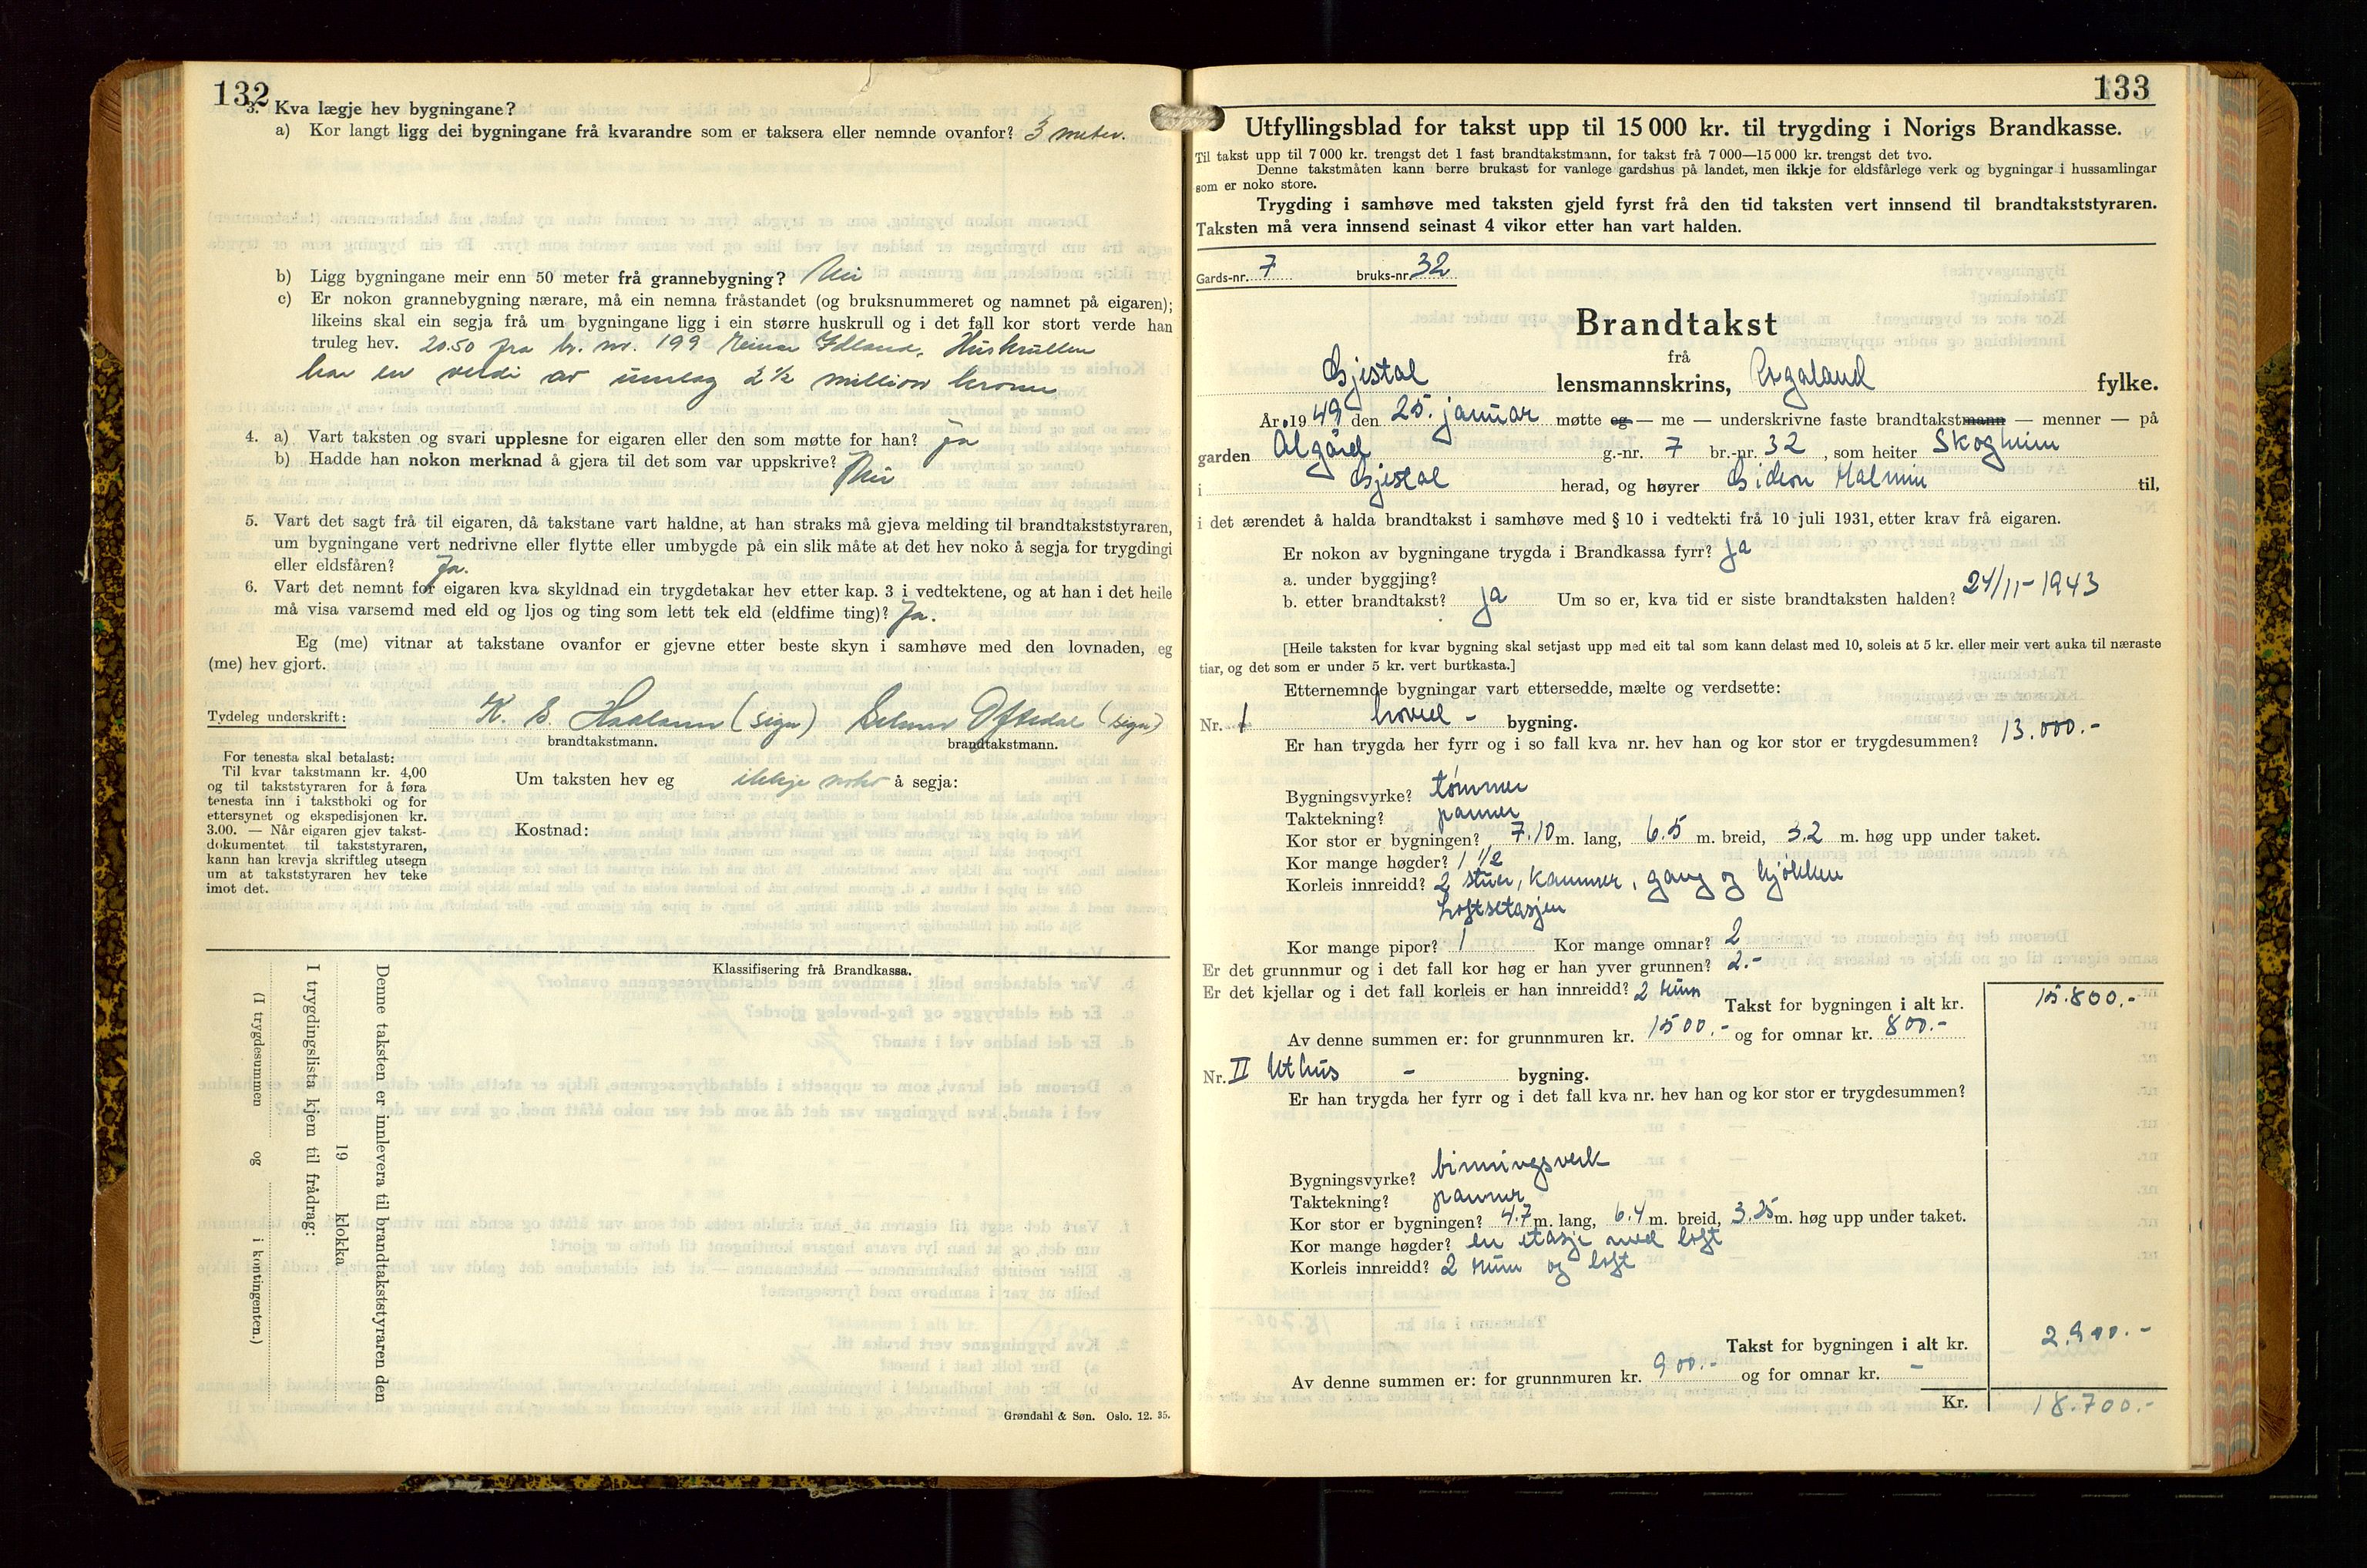 132
3. Kva lægje hev bygningane?
a) Kor langt ligg dei bygningane frå kvarandre som er taksera eller nemnde ovanfor? 3 meter.
b) Ligg bygningane meir enn 50 meter frå grannebygning? Nei
c) Er nokon grannebygning nærare, må ein nemna fråstandet (og bruksnummeret og namnet på eigaren);
likeins skal ein segja frå um bygningane ligg i ein større huskrull og i det fall kor stort verde han
truleg hev. 20.50 fra br. nr. 199 Reinar Edland. Huskrullen
har en verdi av umlag 2 1/2 million kroner
4. a) Vart taksten og svari upplesne for eigaren eller den som møtte for han? Ja
b) Hadde han nokon merknad å gjera til det som var uppskrive? Nei
5. Vart det sagt frå til eigaren, då takstane vart haldne, at han straks må gjeva melding til brandtakststyraren,
um bygningane vert nedrivne eller flytte eller umbygde på ein slik måte at det hev noko å segja for trygdingi
eller eldsfåren? Ja.
6. Vart det nemnt for eigaren kva skyldnad ein trygdetakar hev etter kap. 3 i vedtektene, og at han i det heile
må visa varsemd med eld og ljos og ting som lett tek eld (eldfime ting)? Ja.
Eg (me) vitnar at takstane ovanfor er gjevne etter beste skyn i samhøve med den lovnaden, eg
(me) hev gjort.
Tydeleg underskrift: K. G. Haaland (sign) Selmer Oftedal (sign)
brandtakstmann. brandtakstmann.
For tenesta skal betalast:
Til kvar takstmann kr. 4,00
og til takststyraren for å føra
tenesta inn i takstboki og for
ettersynet og ekspedisjonen kr.
3.00. — Når eigaren gjev takst-
dokumentet til takststyraren,
kann han krevja skriftleg utsegn
um at takststyraren hev teke
imot det.
Um taksten hev eg ikkje noko å segja:
Kostnad:
Klassifisering frå Brandkassa.
Denne taksten er innlevera til brandtakststyraren den
19 klokka
I trygdingslista kjem til frådrag:
(I trygdesummen og i kontingenten.)
Grøndahl & Søn. Oslo. 12. 35.
133
Utfyllingsblad for takst upp til 15 000 kr. til trygding i Norigs Brandkasse.
Til takst upp til 7 000 kr. trengst det 1 fast brandtakstmann, for takst frå 7 000—15 000 kr. trengst det tvo.
Denne takstmåten kann berre brukast for vanlege gardshus på landet, men ikkje for eldsfårlege verk og bygningar i hussamlingar
som er noko store.
Trygding i samhøve med taksten gjeld fyrst frå den tid taksten vert innsend til brandtakststyraren.
Taksten må vera innsend seinast 4 vikor etter han vart halden.
Gards-nr. 7 bruks-nr. 32
Brandtakst
frå
Gjestal lensmannskrins, Rogaland fylke.
År 1949 den 25. januar møtte eg — me — underskrivne faste brandtakstmann — menner — på
garden Ålgård g.-nr. 7 br.-nr. 32, som heiter Skogheim
i Gjestal herad, og høyrer Gideon Malmin til,
i det ærendet å halda brandtakst i samhøve med § 10 i vedtekti frå 10 juli 1931, etter krav frå eigaren.
Er nokon av bygningane trygda i Brandkassa fyrr? Ja
a. under byggjing?
b. etter brandtakst? Ja Um so er, kva tid er siste brandtaksten halden? 24/11-1943
[Heile taksten for kvar bygning skal setjast upp med eit tal som kann delast med 10, soleis at 5 kr. eller meir vert auka til næraste
tiar, og det som er under 5 kr. vert burtkasta.]
Etternemnde bygningar vart ettersedde, mælte og verdsette:
Nr. 1 hoved - bygning.
Er han trygda her fyrr og i so fall kva nr. hev han og kor stor er trygdesummen? 13.000.-
Bygningsvyrke? tømmer
Taktekning? panner
Kor stor er bygningen? 7.10 m. lang, 6.5 m. breid, 3.2 m. høg upp under taket.
Kor mange høgder? 1 1/2
Korleis innreidd? 2 stuer, kammer, gang og kjøkken
Loftsetasjen
Kor mange pipor? 1 Kor mange omnar? 2
Er det grunnmur og i det fall kor høg er han yver grunnen? 2.-
Er det kjellar og i det fall korleis er han innreidd? 2 rum
Takst for bygningen i alt kr. 15.800.-
Av denne summen er: for grunnmuren kr. 1500.- og for omnar kr. 800.-
Nr. II Uthus - bygning.
Er han trygda her fyrr og i det fall kva nr. hev han og kor stor er trygdesummen?
Bygningsvyrke? binningsverk
Taktekning? panner
Kor stor er bygningen? 4.7 m. lang, 6.4 m. breid, 3.25 m. høg upp under taket.
Kor mange høgder? en etasje med loft
Korleis innreidd? 2 rum og loft
Takst for bygningen i alt kr. 2.900.-
Av denne summen er: for grunnmuren kr. 900.- og for omnar kr. -
Kr. 18.700.-